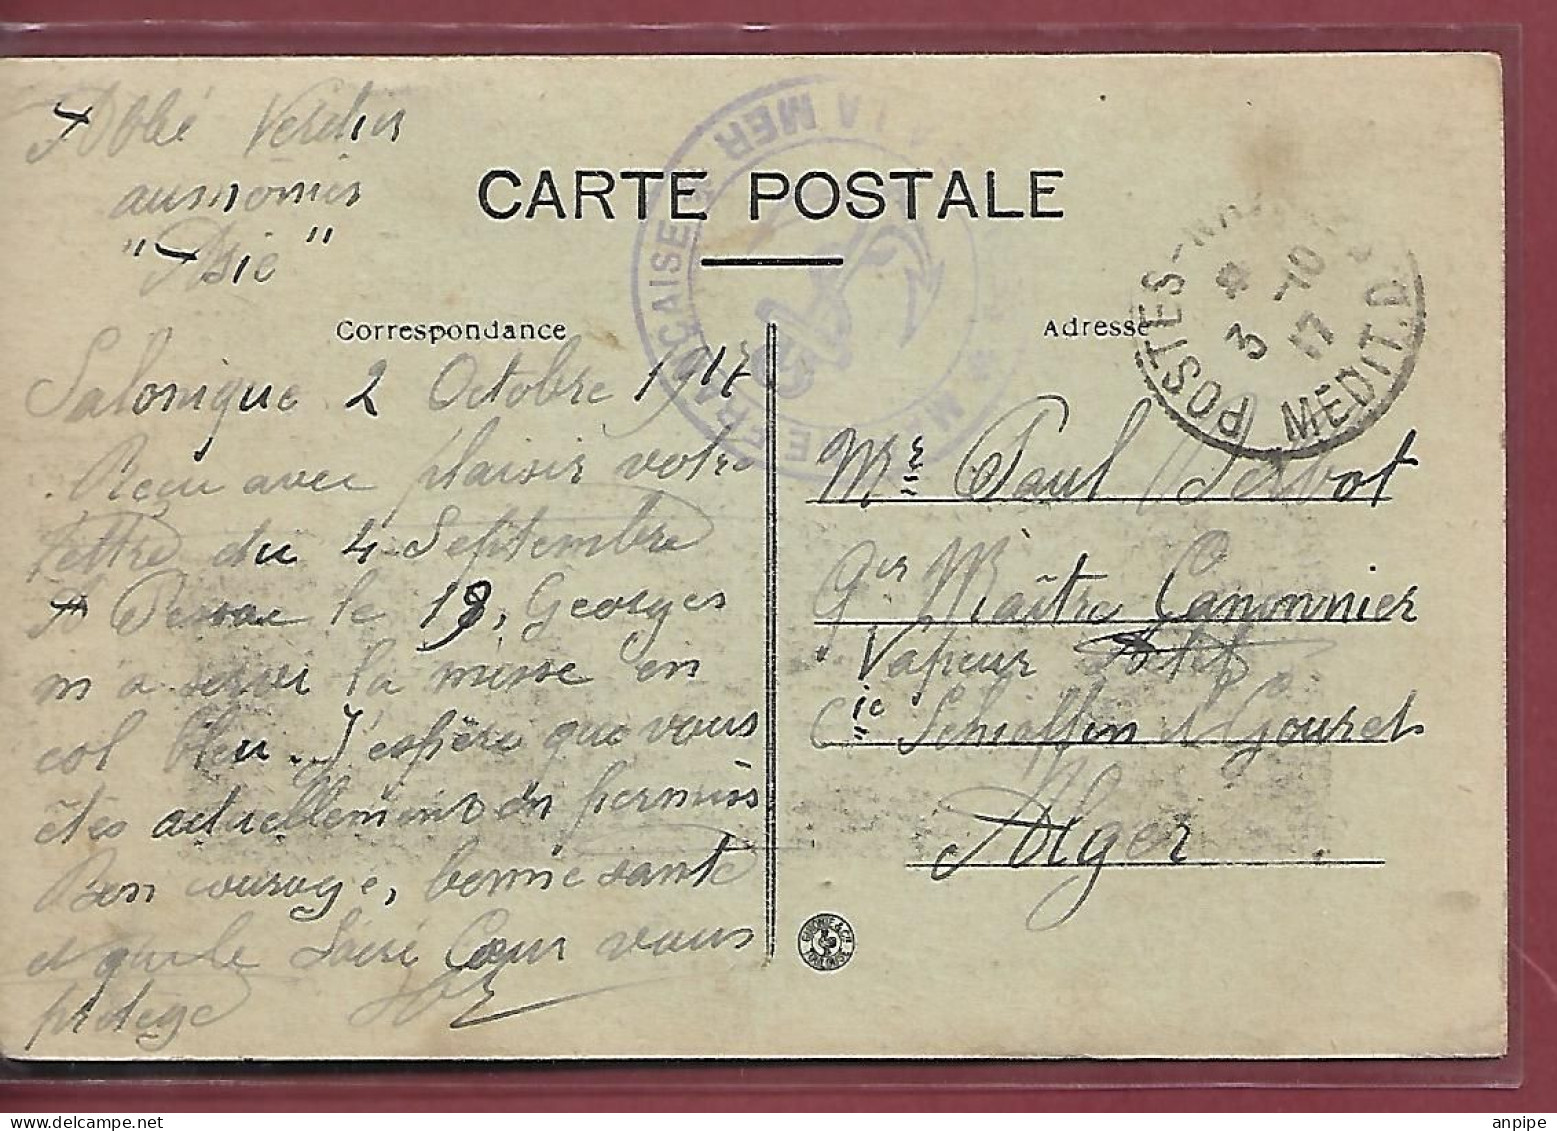 Abbé Verdier
aumônier
"Asie"
CARTE POSTALE
Correspondance
Adresse
FRANÇAISE
LA MER
POSTES-NAV
3 -10 17
MEDIT.D
Salonique 2 Octobre 1917
Reçu avec plaisir votre
lettre du 4 Septembre
A le 19, Georges
m'a servi la messe en
col bleu. J'espère que vous
êtes actuellement en permis
Bon courage, bonne santé
et que le Sacré Cœur vous
protège
Mr Paul Serbot
Qer Maître Canonnier
Vapeur
Cie Schiaffin & Gouret
Alger
SIRONIE & CIE
TOULOUSE
anpipe